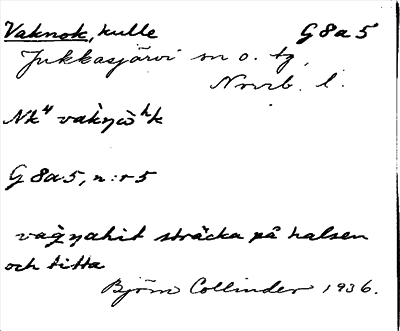 Vaknok, kulle G8a5
Jukkasjärvi sn o. tg,
Norrb. l.
Nk⁴
G8a5, n:r 5
sträcka på halsen
och titta
Björn Collinder 1936.